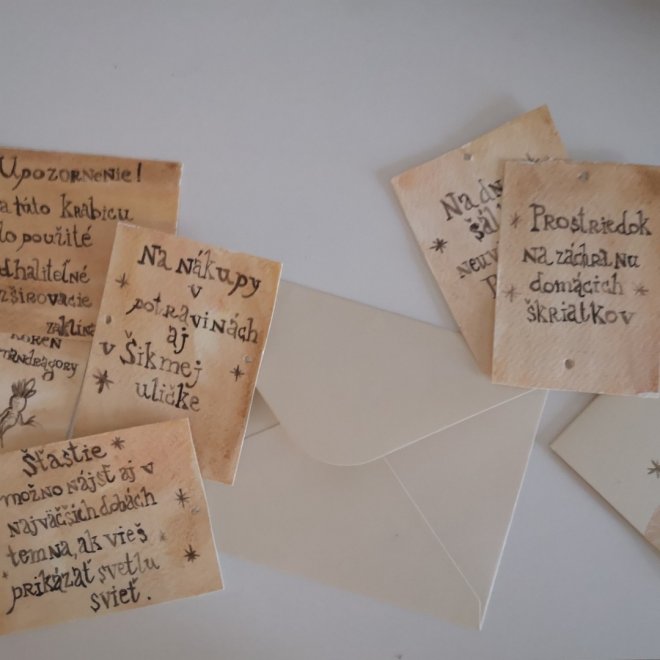 Upozornenie!
a túto krabicu
lo použité
dhaliteľné
zširovacie
zaklína
koreň
mandragory
Na nákupy
v
potravinách
aj
v Šikmej
uličke
Šťastie
možno nájsť aj v
najväčších dobách
temna, ak vieš
prikázať svetlu
svieť.
Na dn
šál
neuv
Prostriedok
na záchranu
domácich
škriatkov